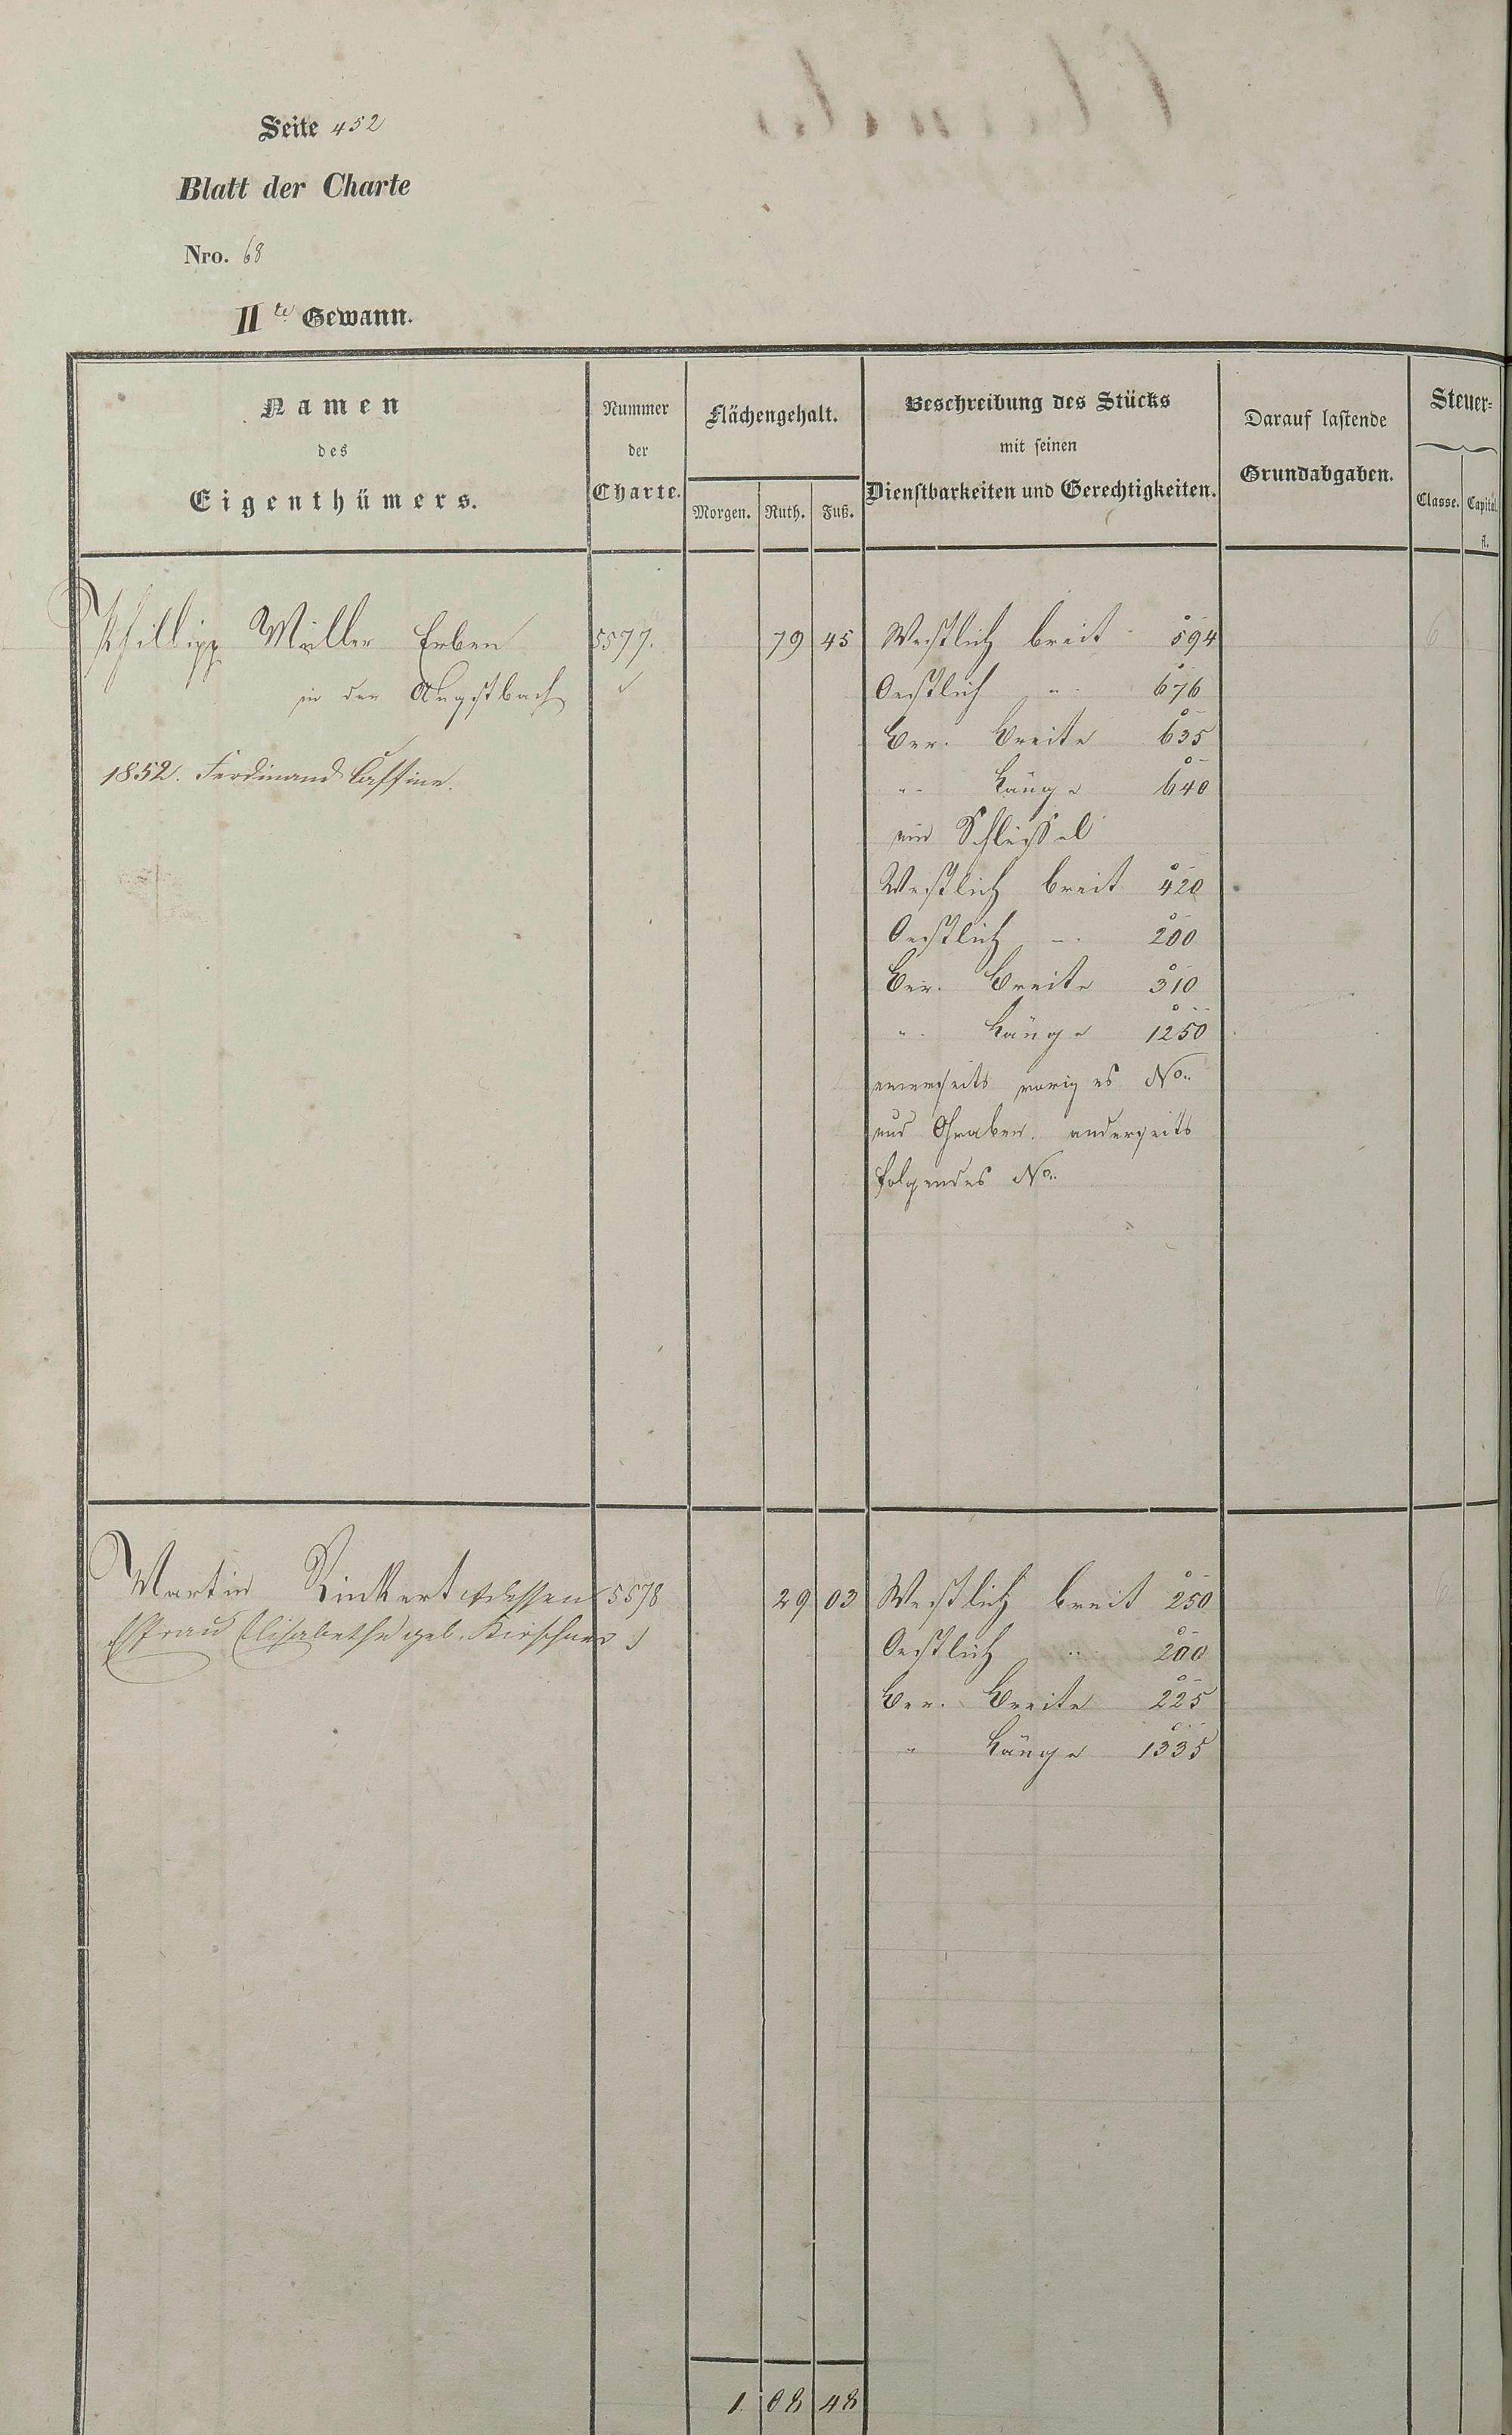 Seite 452
Blatt der Charte
Nro. 68
II te Gewann.
Namen
des
Eigenthümers.
Nummer
der
Charte.
Flächengehalt.
Morgen. Ruth. Fuß.
Beschreibung des Stücks
mit seinen
Dienstbarkeiten und Gerechtigkeiten.
Darauf lastende
Grundabgaben.
Steuer-
Classe. Capital
fl.
Phillipp Müller Erben 5577. 79 45 Westlich breit 594
in der Angstbach Oestlich " 676
Ber. Breite 635
1852. Ferdinand Cassine. " Länge 640
ein Schlüssel
Westlich breit 420
Oestlich " 200
Ber. Breite 310
" Länge 1250
einerseits voriges No.
und Graben. anderseits
folgendes No.
Martin Rinkert dessen 5578 29 03 Westlich breit 250
Ehfrau Elisabetha geb. Kirschner Oestlich " 200
Ber. Breite 225
" Länge 1335
1 08 48